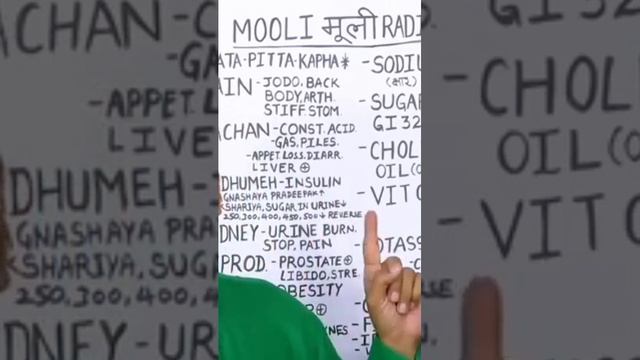 MOOLI मूली RADI
ATA-PITTA-KAPHA*
AIN-JODO, BACK
BODY, ARTH.
STIFF. STOM.
ACHAN-CONST. ACID.
-GAS, PILES.
-APPET. LOSS. DIARR.
LIVER ⊕
DHUMEH-INSULIN
GNASHAYA PRADEEPAK↑
KSHARIYA, SUGAR IN URINE↓
250, 300, 400, 450, 500↓ REVERSE
DNEY-URINE BURN.
STOP, PAIN
PROD.-PROSTATE⊕
LIBIDO, STRE
OBESITY
-SODIU
(क्षार)
-SUGAR
GI 32
-CHOL
OIL (0
-VIT C
OTASS
ACHAN-
-GA
-APPET.
LIVER
DHUMEH-
GNASHAYA
KSHARIYA, SUGA
250, 300, 400,
DNEY-UR
-CHOL
OIL (0
-VIT C